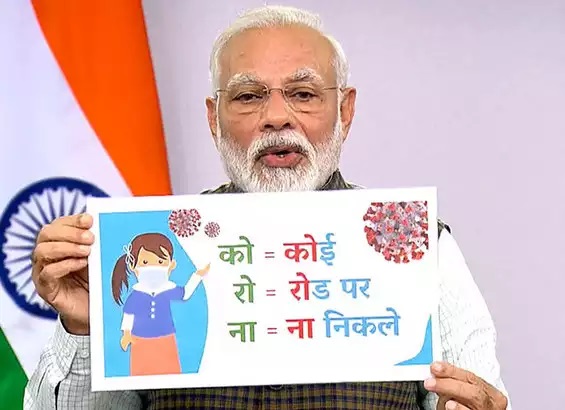 को = कोई
रो = रोड पर
ना = ना निकले